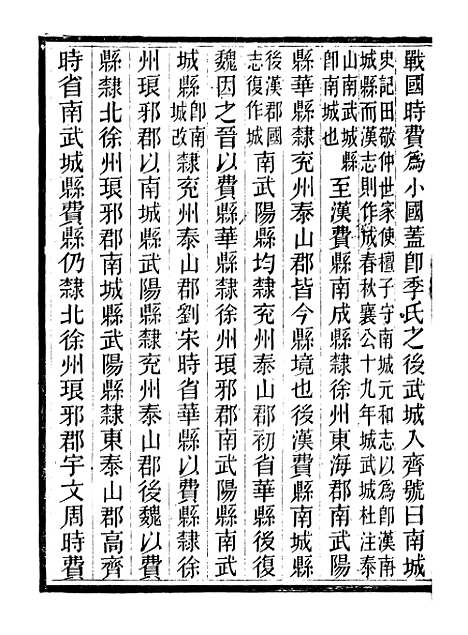 戰國時費爲小國蓋卽季氏之後武城入齊號曰南城
史記田敬仲世家使檀子守南城元和志以爲漢南
城縣而漢志則作成春秋襄公十九年城武城杜注泰
山南武城縣
卽南城也
至漢費縣南成縣隸徐州東海郡南武陽
縣華縣隸兖州泰山郡皆今縣境也後漢費縣南城縣
後漢郡國
志復作城
南武陽縣均隸兖州泰山郡初省華縣後復
魏因之晉以費縣華縣隸徐州琅邪郡南武陽縣南武
城縣
卽南
城改
隸兖州泰山郡劉宋時省華縣以費縣隸徐
州琅邪郡以南城縣武陽縣隸兖州泰山郡後魏以費
縣隸北徐州琅邪郡南城縣武陽縣隸東泰山郡高齊
時省南武城縣費縣仍隸北徐州琅邪郡宇文周時費